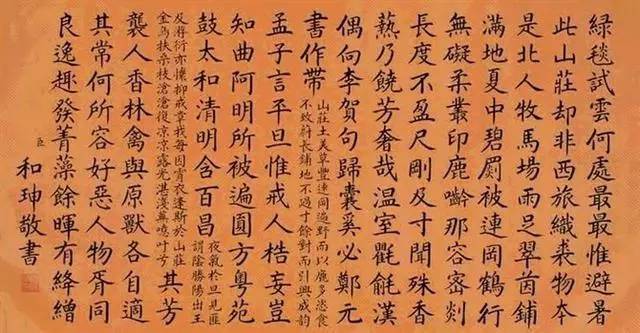 綠毯試雲何處最最惟避暑
此山莊却非西旅織裘物本
是北人牧馬場雨足翠茵鋪
滿地夏中碧罽被連岡鶴行
無礙柔叢印鹿那容密剡
長度不盈尺剛及寸聞殊香
爇乃饒芳奢哉温室氍漢
偶向李賀句歸囊奚必鄭元
書作帶
山莊土美草豐遠同遍野而以鹿多恣食
不致蔚長鋪地不過寸餘對而引興成韵
孟子言平旦惟戒人梏妄豈
知曲阿明所被遍圓方粤苑
鼓太和清明含百昌
夜氣於旦見匪
謂陰勝陽出王
及游衍亦懷抑戒章我每因宵衣逢斯於山莊
金烏扶桑枝滄滄復凉凉露光湛淺草叶兮
其芳
襲人香林禽與原獸各自適
其常何所容好惡人物胥同
良逸趣發菁藻餘暉有絳繒
臣和珅敬書